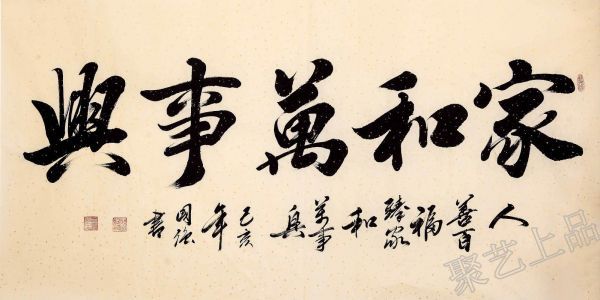 家和萬事興
人善百福臻家和萬事興
己亥年國強書
聚艺上品